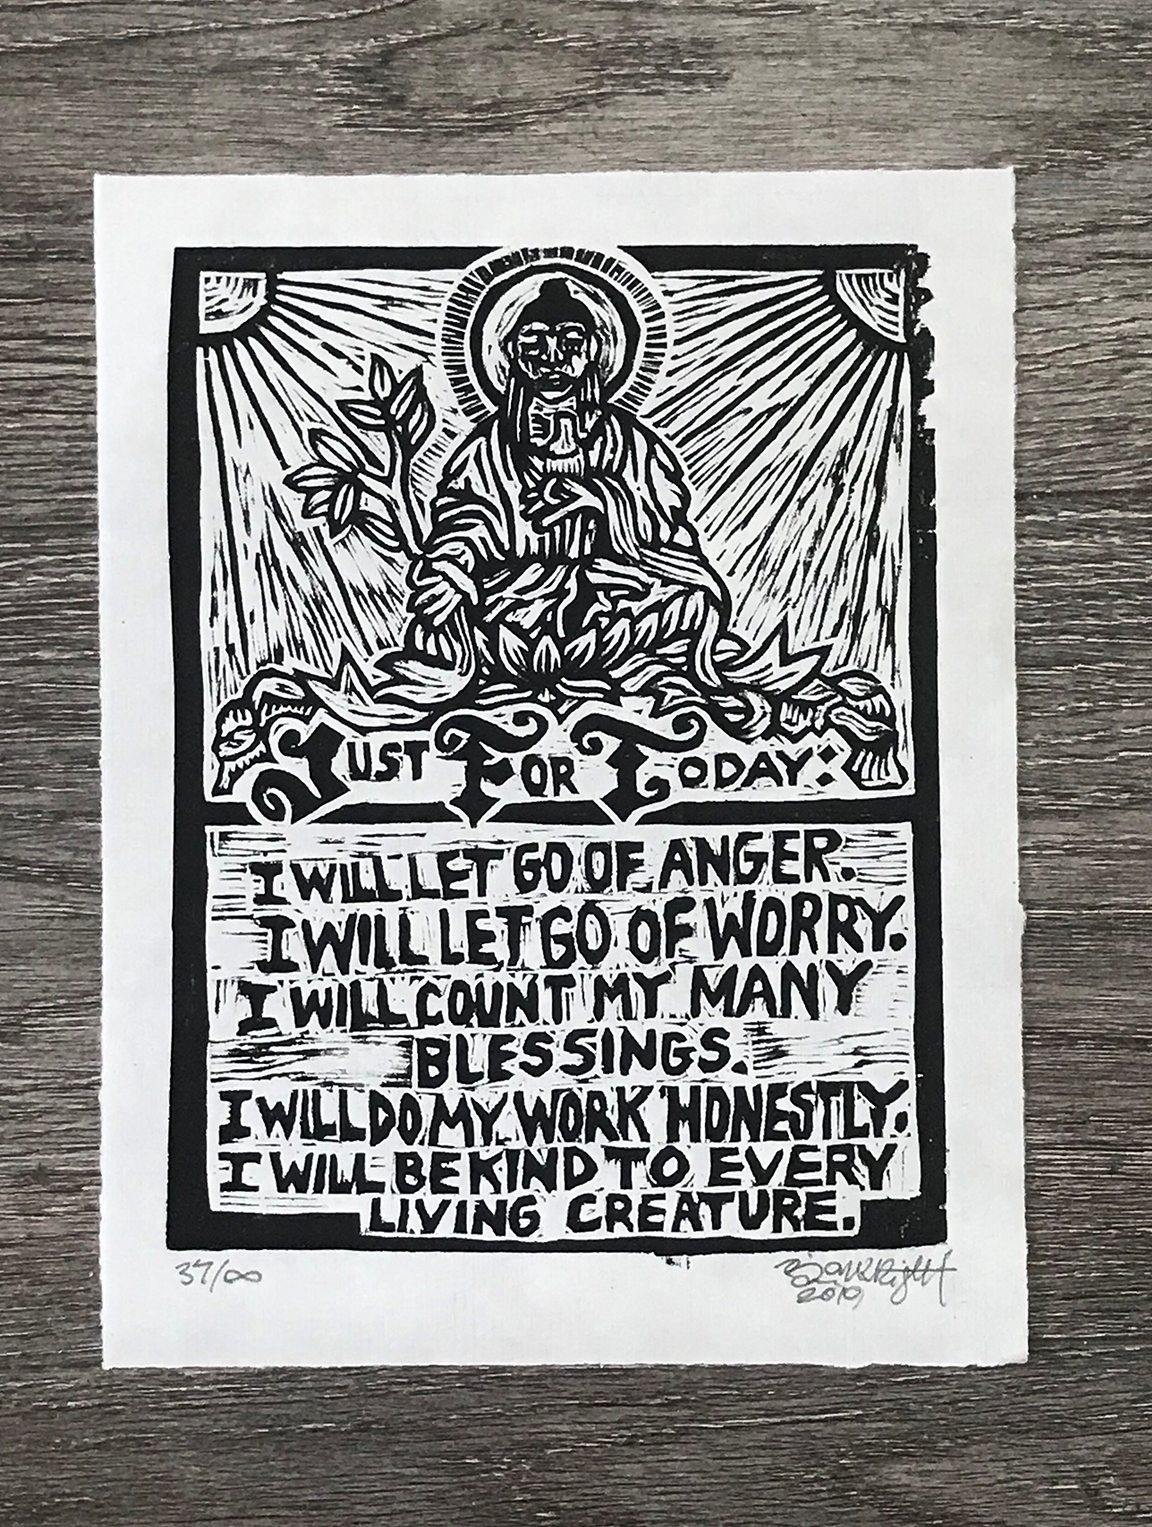 JUST FOR TODAY:
I WILL LET GO OF ANGER.
I WILL LET GO OF WORRY.
I WILL COUNT MY MANY
BLESSINGS.
I WILL DO MY WORK HONESTLY.
I WILL BE KIND TO EVERY
LIVING CREATURE.
37/∞
2019